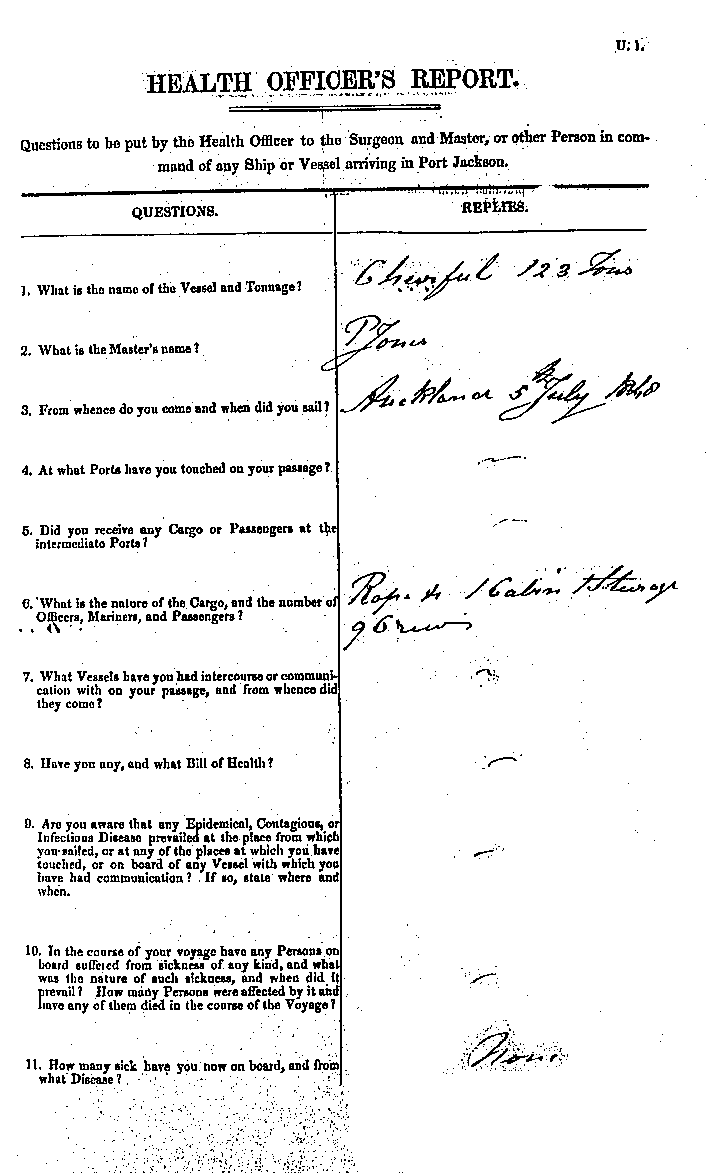 U: 1.
HEALTH OFFICER'S REPORT.
Questions to be put by the Health Officer to the Surgeon and Master, or other Person in com-
mand of any Ship or Vessel arriving in Port Jackson.
QUESTIONS.
REPLIES.
1. What is the name of the Vessel and Tonnage?
Cheerful 123 Tons
2. What is the Master's name?
P Jones
3. From whence do you come and when did you sail?
Auckland 5th July
4. At what Ports have you touched on your passage?
—
5. Did you receive any Cargo or Passengers at the
intermediate Ports?
—
6. What is the nature of the Cargo, and the number of
Officers, Mariners, and Passengers?
Rope & 1 Cabin 1 Sturage
9 Crew
7. What Vessels have you had intercourse or communi-
cation with on your passage, and from whence did
they come?
—
8. Have you any, and what Bill of Health?
—
9. Are you aware that any Epidemical, Contagious, or
Infectious Disease prevailed at the place from which
you sailed, or at any of the places at which you have
touched, or on board of any Vessel with which you
have had communication? If so, state where and
when.
—
10. In the course of your voyage have any Persons on
board suffered from sickness of any kind, and what
was the nature of such sickness, and when did it
prevail? How many Persons were affected by it and
have any of them died in the course of the Voyage?
—
11. How many sick have you now on board, and from
what Disease?
None